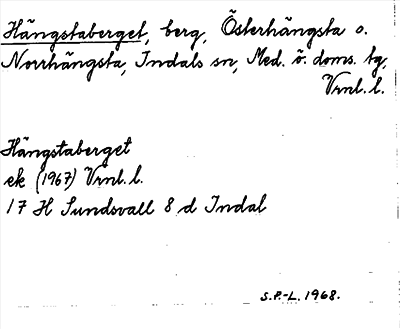 Hängstaberget, berg, Österhängsta o.
Norrhängsta, Indals sn, Med. ö. doms. tg,
Vrnl. l.
Hängstaberget
ek (1967) Vrnl. l.
17 H Sundsvall 8 d Indal
S.P.-L. 1968.